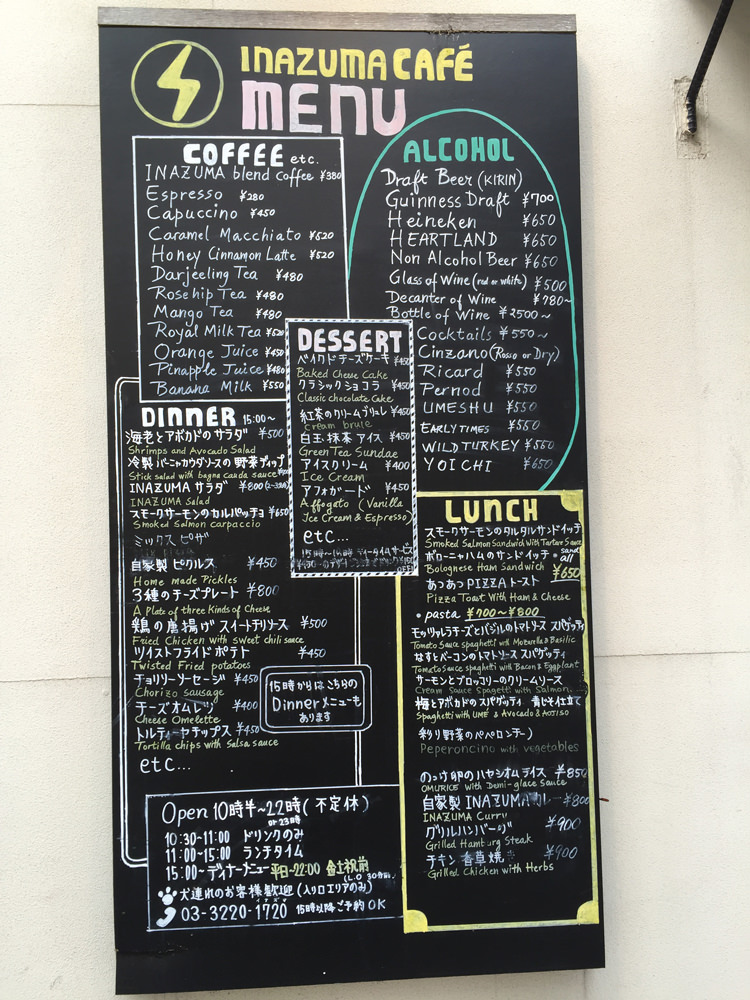 INAZUMA CAFÉ
MENU
COFFEE etc.
INAZUMA blend Coffee ¥380
Espresso ¥280
Capuccino ¥450
Caramel Macchiato ¥520
Honey Cinnamon Latte ¥520
Darjeeling Tea ¥480
Rosehip Tea ¥480
Mango Tea ¥480
Royal Milk Tea ¥520
Orange Juice ¥450
Pinapple Juice ¥480
Banana Milk ¥550
ALCOHOL
Draft Beer (KIRIN)
Guinness Draft ¥700
Heineken ¥650
HEARTLAND ¥650
Non Alcohol Beer ¥650
Glass of Wine (red or white) ¥500
Decanter of Wine ¥780~
Bottle of Wine ¥2500~
Cocktails ¥550~
Cinzano (Rosso or Dry)
Ricard ¥550
Pernod ¥550
UMESHU ¥550
EARLY TIMES ¥550
WILD TURKEY ¥550
YOICHI ¥650
DESSERT
ベイクドチーズケーキ ¥450
Baked Cheese Cake
クラシックショコラ ¥450
Classic chocolate Cake
紅茶のクリームブリュレ ¥450
cream brule
白玉抹茶アイス ¥450
Green Tea Sundae
アイスクリーム ¥400
Ice Cream
アフォガード ¥450
Affogato (Vanilla
Ice Cream & Espresso)
etc...
DINNER 15:00~
海老とアボカドのサラダ ¥500
Shrimps and Avocado Salad
冷製バーニャカウダソースの野菜ディップ
Stick salad with bagna cauda sauce
INAZUMA サラダ ¥800
INAZUMA Salad
スモークサーモンのカルパッチョ ¥650
Smoked Salmon carpaccio
ミックス ピザ
自家製 ピクルス ¥450
Home made Pickles
3種のチーズプレート ¥800
A Plate of three Kinds of Cheese
鶏の唐揚げ スイートチリソース ¥500
Fried Chicken with sweet chili sauce
ツイストフライドポテト ¥450
Twisted Fried potatoes
チョリソーソーセージ ¥450
Chorizo sausage
チーズオムレツ ¥400
Cheese Omelette
トルティーヤチップス ¥450
Tortilla chips with Salsa sauce
etc...
15時からはこちらの
Dinnerメニューも
あります
LUNCH
スモークサーモンのタルタルサンドイッチ
Smoked Salmon Sandwich with Tartare Sauce
ボローニャハムのサンドイッチ • sand all
Bolognese Ham Sandwich ¥650
あつあつPIZZAトースト
Pizza Toast With Ham & Cheese
• pasta ¥700~¥800
モッツァレラチーズとバジルのトマトソース スパゲッティ
Tomato Sauce spaghetti with Mozzarella & Basilic
なすとベーコンのトマトソース スパゲッティ
Tomato Sauce spaghetti with Bacon & Eggplant
サーモンとブロッコリーのクリームソース
Cream Sauce Spagetti with Salmon.
梅とアボカドのスパゲッティ 青じそ仕立て
Spaghetti with UME & Avocado & AOJISO
彩り野菜のペペロンチーノ
Peperoncino with vegetables
のっけ卵のハヤシオムライス ¥850
OMURICE with Demi-glace sauce
自家製 INAZUMAカレー ¥800
INAZUMA Curry
グリルハンバーグ ¥900
Grilled Hamburg Steak
チキン香草焼 ¥900
Grilled Chicken with Herbs
Open 10時半~22時(不定休)
or 23時
10:30~11:00 ドリンクのみ
11:00~15:00 ランチタイム
15:00~ディナーメニュー 平日~22:00 金土祝前
(L.O 30分前)
犬連れのお客様歓迎(入り口エリアのみ)
イナズマ
03-3220-1720 15時以降ご予約OK